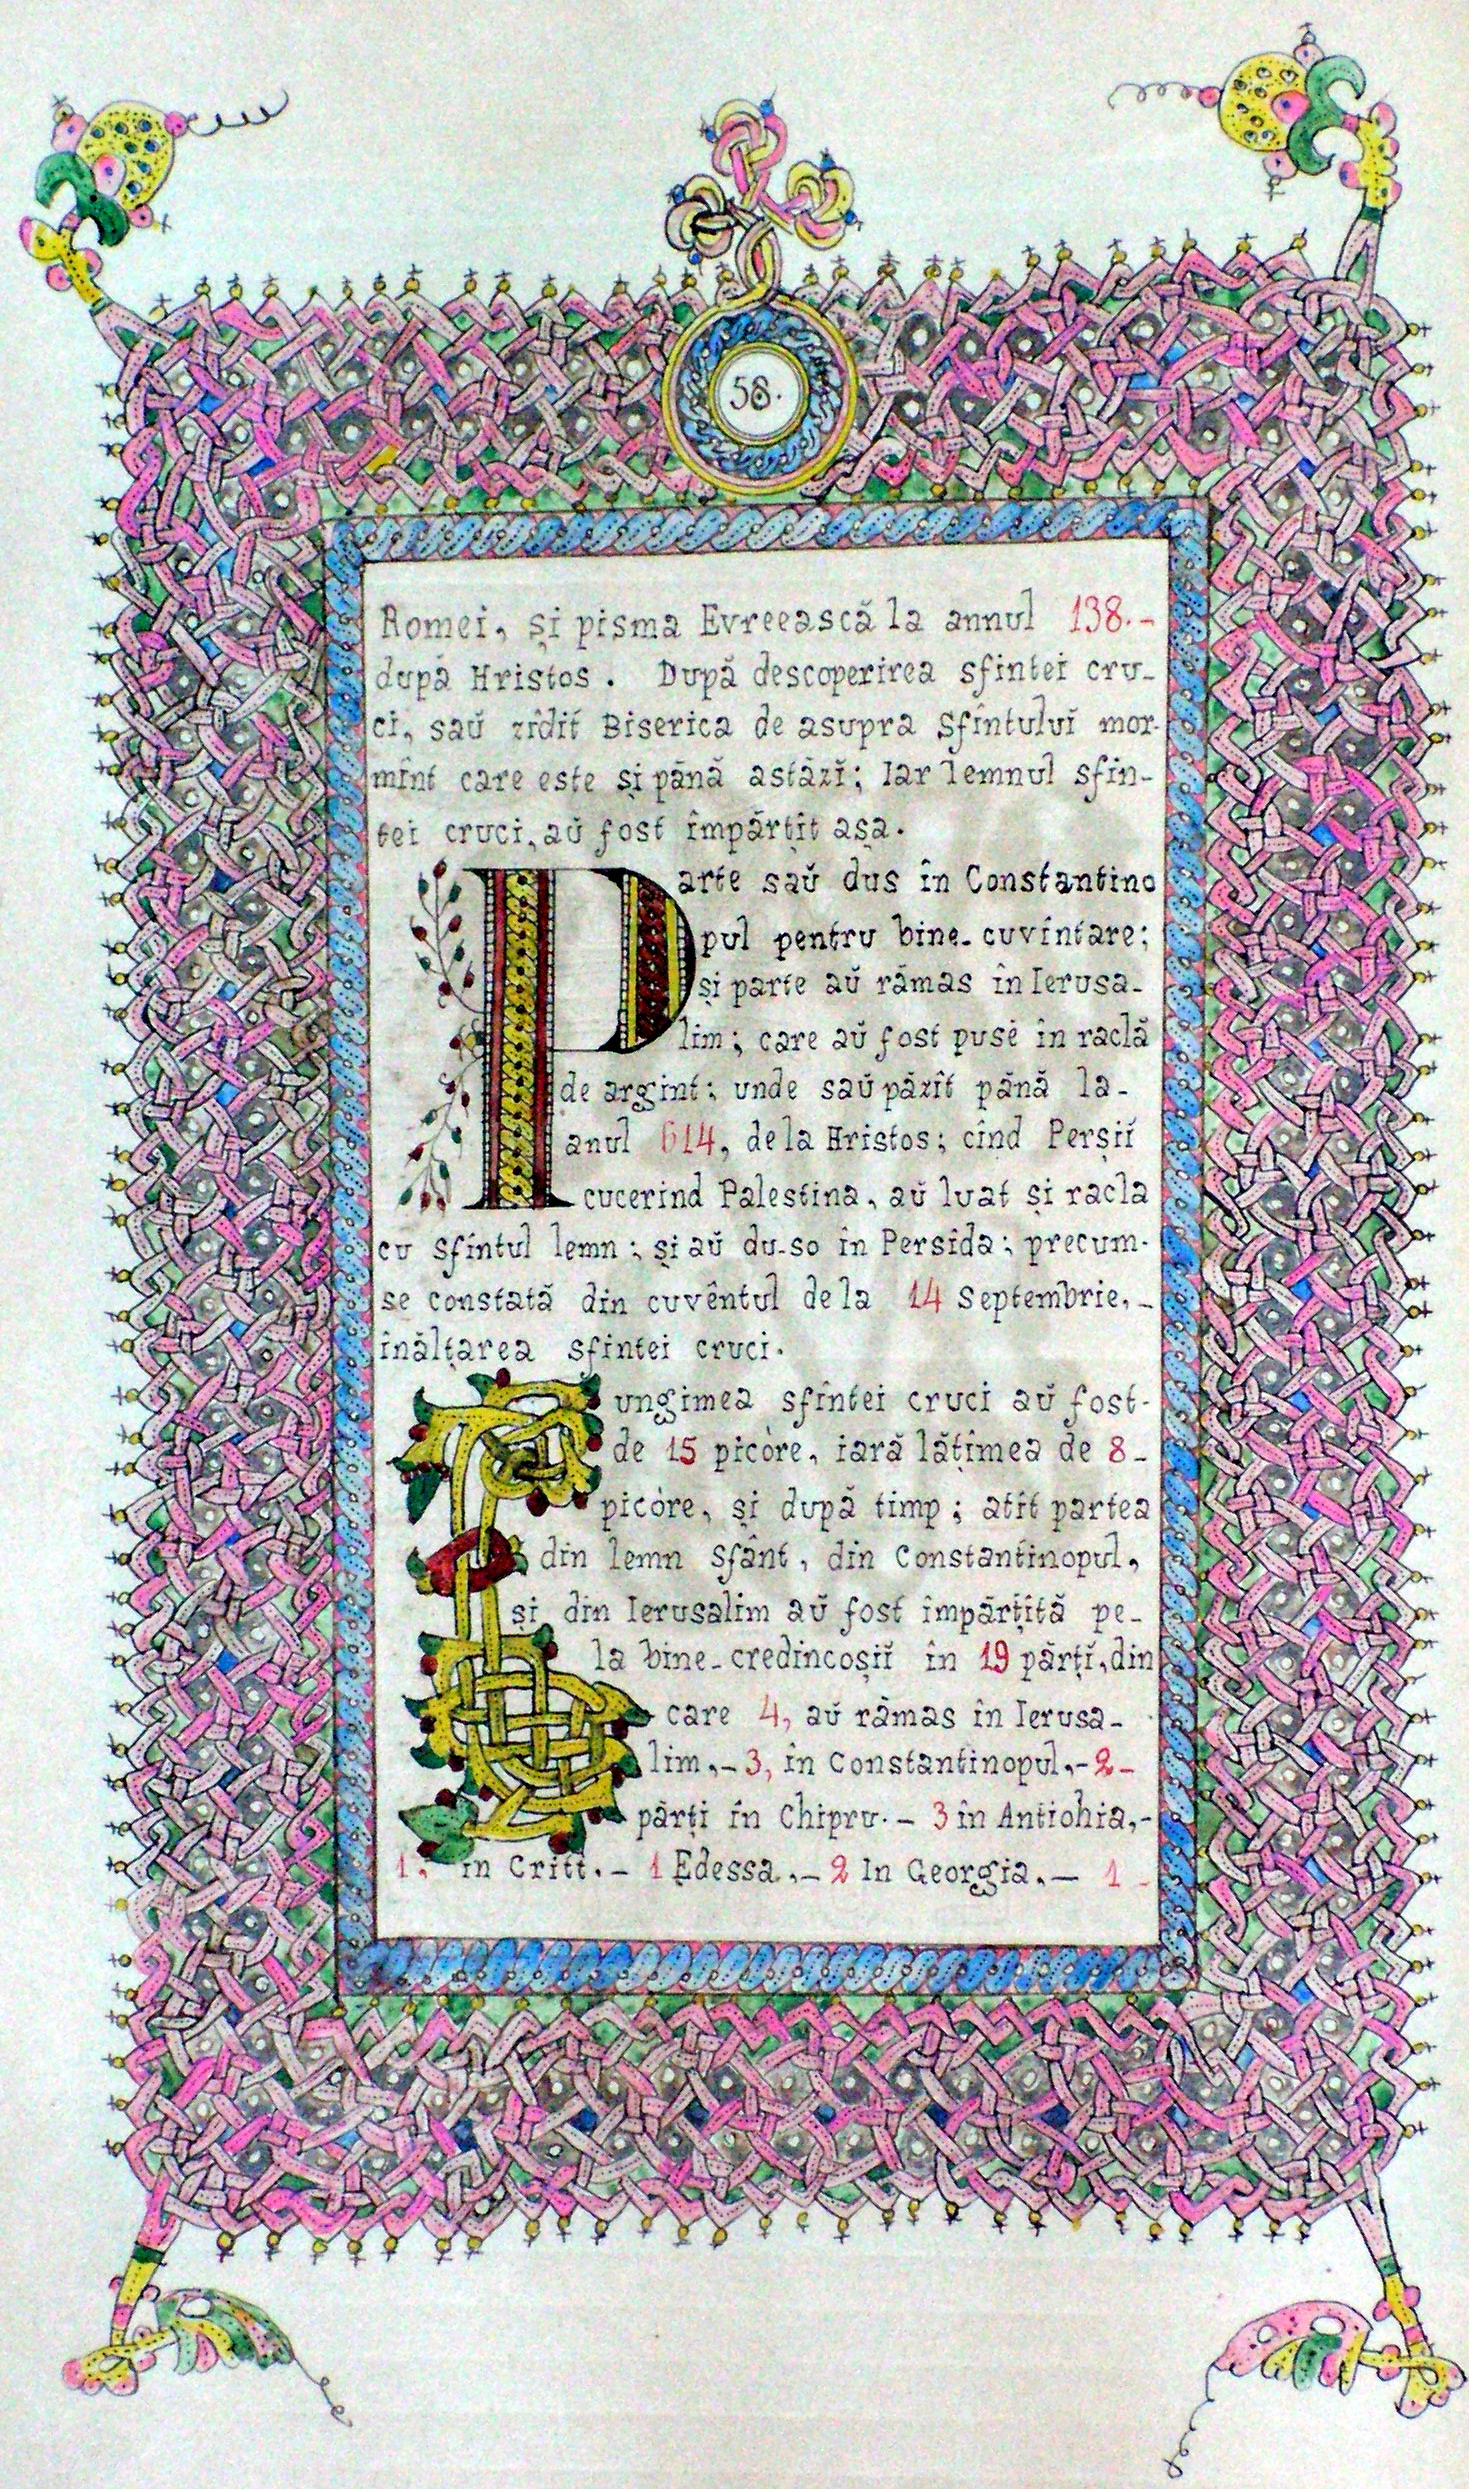 58.
Romei, și pisma Evreească la annul 138.-
după Hristos. După descoperirea sfintei cru-
ci, saŭ zîdit Biserica de asupra Sfîntuluĭ mor-
mînt care este și pănă astăzĭ; Iar lemnul sfin-
tei cruci, aŭ fost împărțît așa.
Parte saŭ dus în Constantino
pul pentru bine-cuvîntare;
și parte aŭ rămas în Ierusa-
lim; care aŭ fost puse în raclă
de argint; unde saŭ păzît pănă la-
anul 614, de la Hristos; cînd Perșiĭ
cucerind Palestina, aŭ luat și racla
cu sfîntul lemn; și aŭ du-so în Persida; precum-
se constată din cuvêntul de la 14 Septembrie,-
înălțarea sfintei cruci.
Lungimea sfîntei cruci aŭ fost-
de 15 picòre, iară lățîmea de 8-
picòre, și după timp; atît partea
din lemn Sfânt, din Constantinopul,
și din Ierusalim aŭ fost împărțîtă pe-
la bine-credincoșiĭ în 19 părțĭ, din
care 4, aŭ rămas în Ierusa-
lim,-3, în Constantinopul,-2-
părți în Chipru.-3 în Antiohia,-
1, in Critt.-1 Edessa.,-2 In Georgia.-1-